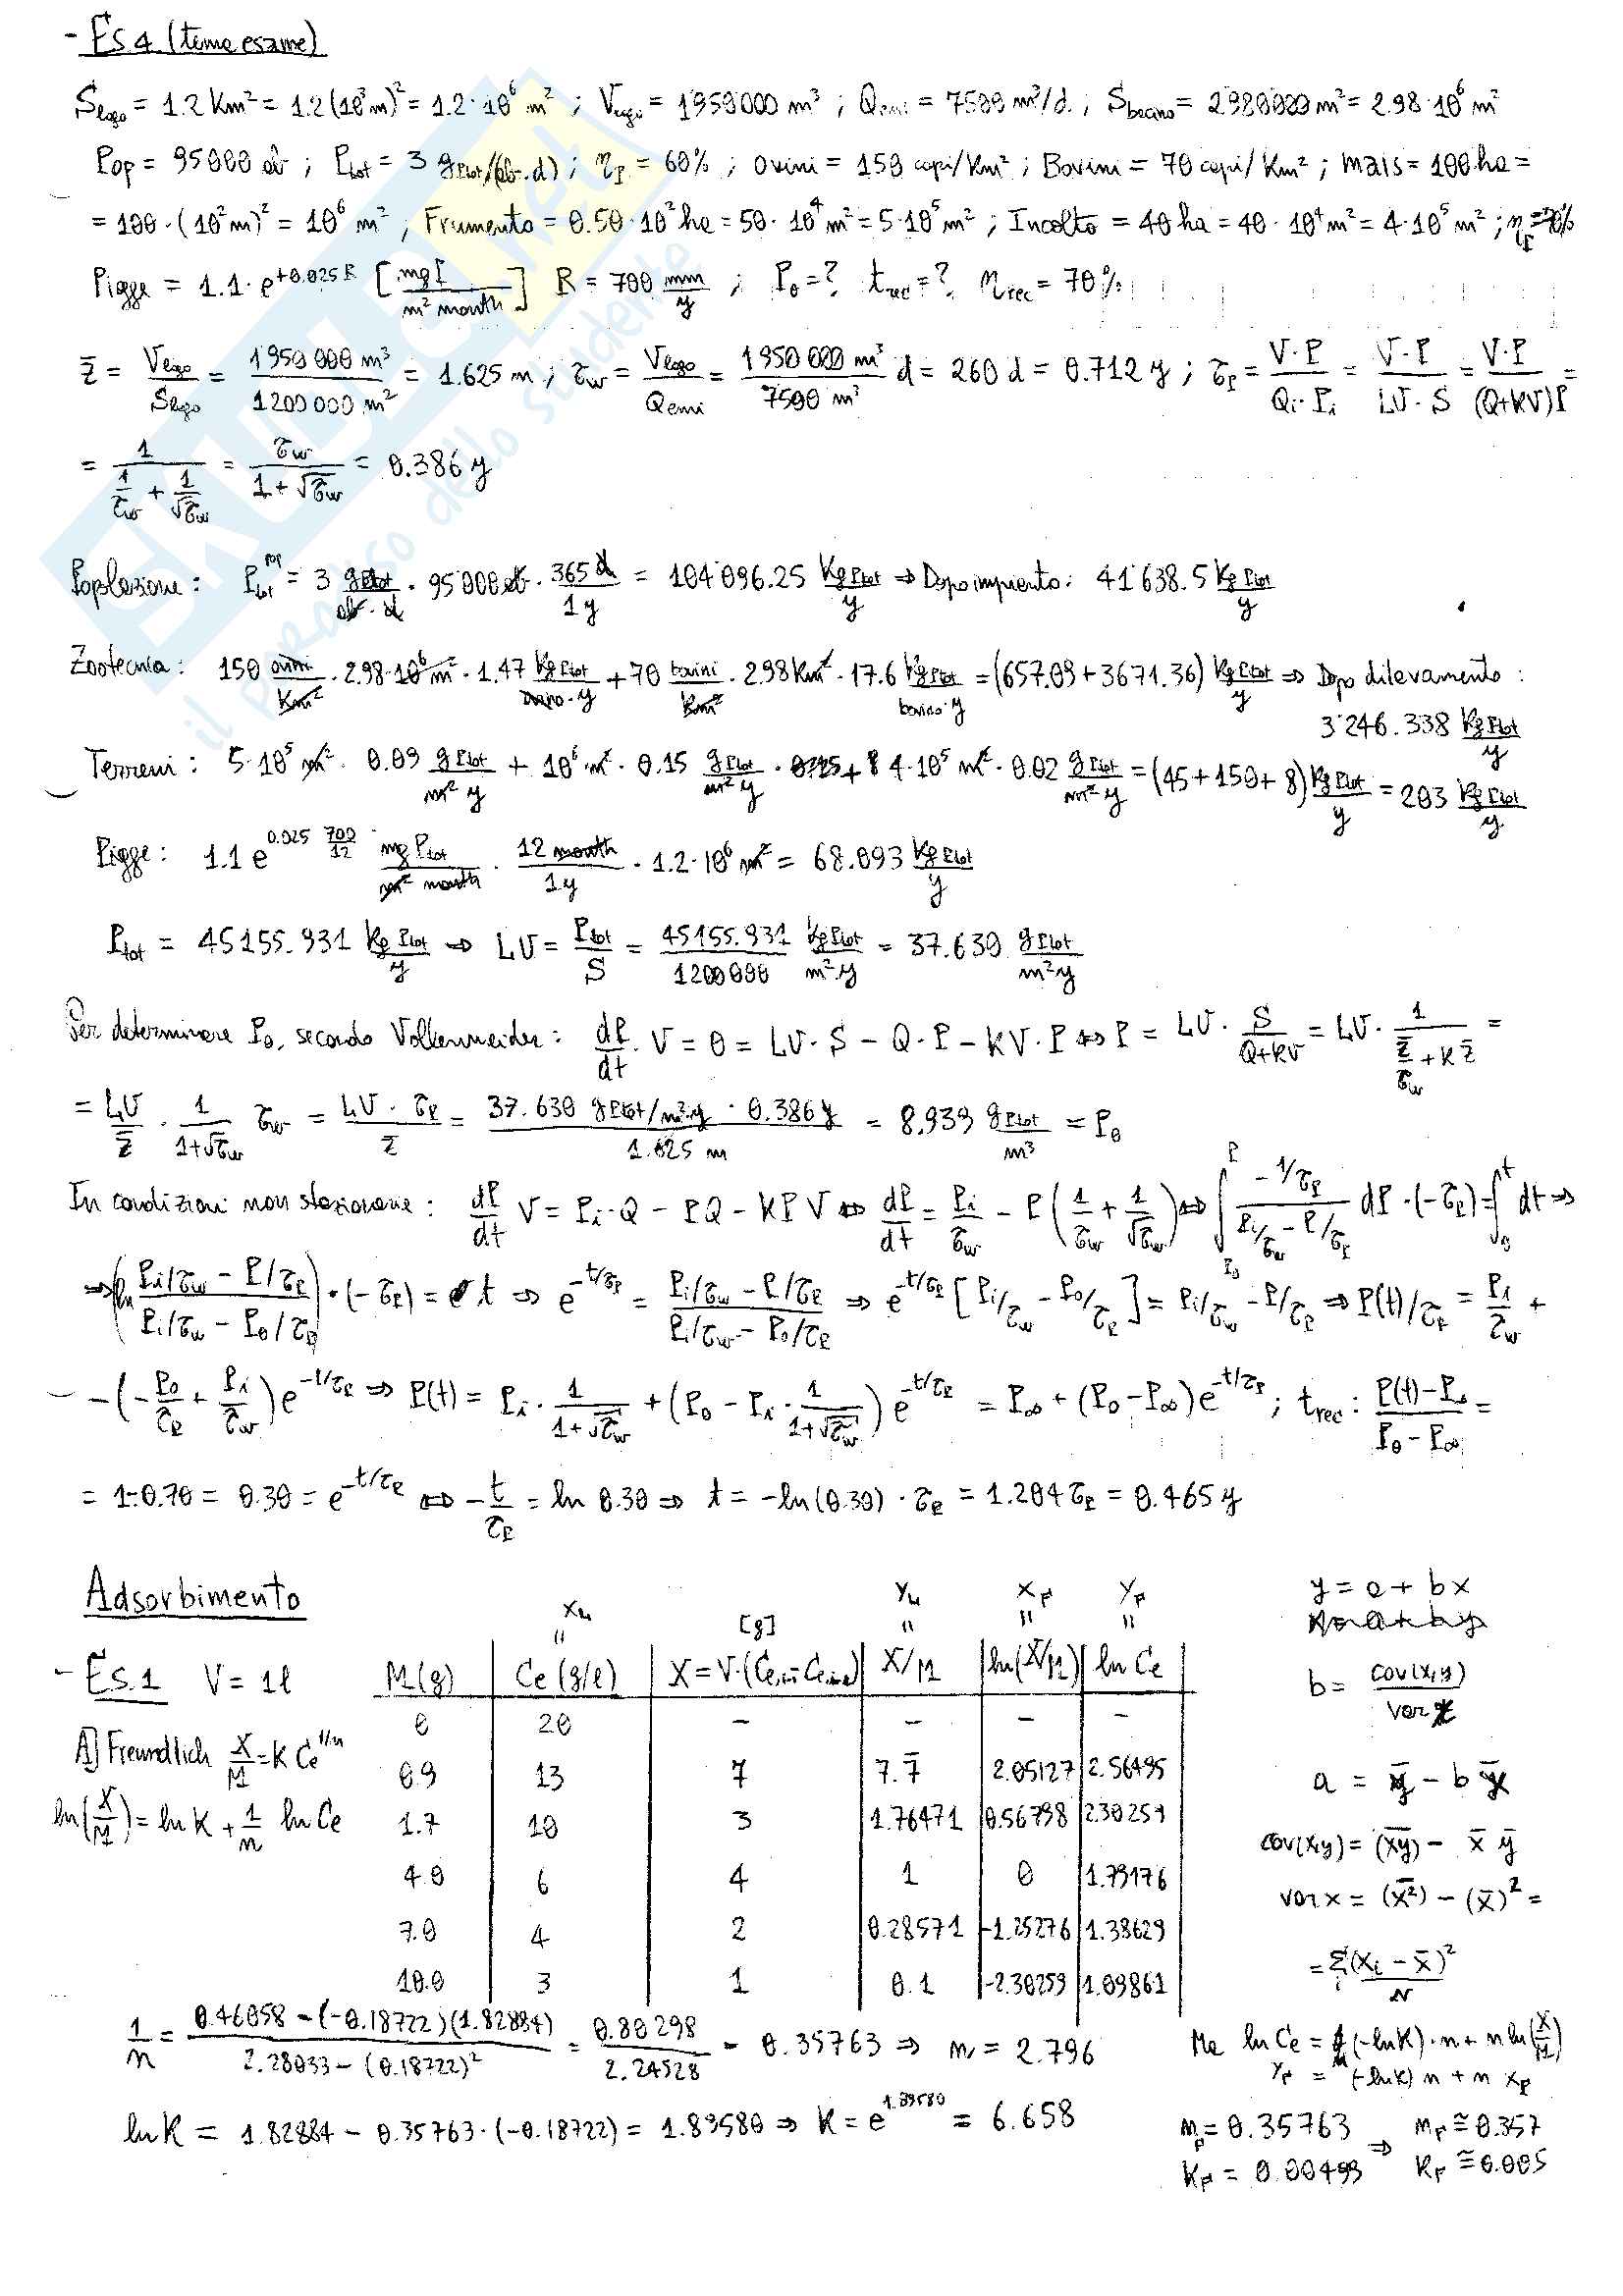 - Es 4 (tema esame)
S_lago = 1.2 Km² = 1.2 (10³ m)² = 1.2·10⁶ m² ; V_lago = 1950000 m³ ; Q_emi = 7500 m³/d ; S_bacino = 2980000 m² = 2.98·10⁶ m²
Pop = 95000 ab ; P_tot = 3 g_Ptot/(ab·d) ; η_P = 60% ; Ovini = 150 capi/Km² ; Bovini = 70 capi/Km² ; Mais = 100 ha =
= 100·(10² m)² = 10⁶ m² ; Frumento = 0.50·10² ha = 50·10⁴ m² = 5·10⁵ m² ; Incolto = 40 ha = 40·10⁴ m² = 4·10⁵ m² ;
Piogge = 1.1·e^(+0.025 R) [mgP / m² month] R = 700 mm/y ; P₀ = ? t_rec = ? η_rec = 70%
z̄ = V_lago/S_lago = 1950 000 m³/1200 000 m² = 1.625 m ; τ_w = V_lago/Q_emi = 1950 000 m³/7500 m³ d = 260 d = 0.712 y ; τ_P = V·P/(Q_i·P_i) = V·P/(LV·S) = V·P/((Q+KV)P) =
= 1/(1/τ_w + 1/√τ_w) = τ_w/(1+√τ_w) = 0.386 y
Poplazione : P_tot^pop = 3 g Ptot/(ab·d) · 95000 ab · 365 d/1 y = 104'096.25 Kg Ptot/y ⇒ Dopo impianto : 41'638.5 Kg Ptot/y
Zootecnia : 150 ovini/Km² · 2.98·10⁶ m² · 1.47 Kg Ptot/(ovino·y) + 70 bovini/Km² · 2.98 Km² · 17.6 Kg Ptot/(bovino·y) = (657.09 + 3671.36) Kg Ptot/y ⇒ Dopo dilavamento :
3'246.338 Kg Ptot/y
Terreni : 5·10⁵ m² · 0.09 g Ptot/(m² y) + 10⁶ m² · 0.15 g Ptot/(m² y) + 4·10⁵ m² · 0.02 g Ptot/(m² y) = (45 + 150 + 8) Kg Ptot/y = 203 Kg Ptot/y
Piogge : 1.1 e^(0.025 700/12) mg Ptot/(m² month) · 12 month/1 y · 1.2·10⁶ m² = 68.093 Kg Ptot/y
P_tot = 45155.931 Kg Ptot/y ⇒ LV = P_tot/S = 45155.931/1200000 Kg Ptot/(m²·y) = 37.630 g Ptot/(m² y)
Per determinare P₀, secondo Vollenweider : dP/dt · V = 0 = LV·S - Q·P - KV·P ⇔ P = LV · S/(Q+KV) = LV · 1/(z̄/τ_w + K z̄) =
= LV/z̄ · 1/(1+√τ_w) τ_w = LV·τ_P/z̄ = 37.630 g Ptot/m²·y · 0.386 y / 1.625 m = 8.939 g Ptot/m³ = P₀
In condizioni non stazionarie : dP/dt V = P_i·Q - PQ - KPV ⇔ dP/dt = P_i/τ_w - P(1/τ_w + 1/√τ_w) ⇔ ∫_{P₀}^{P} (-1/τ_P)/(P_i/τ_w - P/τ_P) dP·(-τ_P) = ∫₀^t dt ⇒
⇒ ln((P_i/τ_w - P/τ_P)/(P_i/τ_w - P₀/τ_P))·(-τ_P) = t ⇒ e^(-t/τ_P) = (P_i/τ_w - P/τ_P)/(P_i/τ_w - P₀/τ_P) ⇒ e^(-t/τ_P) [P_i/τ_w - P₀/τ_P] = P_i/τ_w - P/τ_P ⇒ P(t)/τ_P = P_i/τ_w +
- (-P₀/τ_P + P_i/τ_w) e^(-t/τ_P) ⇒ P(t) = P_i · 1/(1+√τ_w) + (P₀ - P_i · 1/(1+√τ_w)) e^(-t/τ_P) = P∞ + (P₀ - P∞) e^(-t/τ_P) ; t_rec : (P(t) - P∞)/(P₀ - P∞) =
= 1-0.70 = 0.30 = e^(-t/τ_P) ⇔ -t/τ_P = ln 0.30 ⇒ t = -ln(0.30)·τ_P = 1.204 τ_P = 0.465 y
Adsorbimento
- Es.1 V = 1l
A] Freundlich X/M = K Ce^(1/n)
ln(X/M) = ln K + 1/n ln Ce
x_L [g] y_L x_F y_F
M (g) | Ce (g/l) | X = V·(Ce,i - Ce,i+1) | X/M | ln(X/M) | ln Ce
0 | 20 | - | - | - | -
0.9 | 13 | 7 | 7.7̄ | 2.05127 | 2.56495
1.7 | 10 | 3 | 1.76471 | 0.56798 | 2.30259
4.0 | 6 | 4 | 1 | 0 | 1.79176
7.0 | 4 | 2 | 0.28571 | -1.25276 | 1.38629
10.0 | 3 | 1 | 0.1 | -2.30259 | 1.09861
y = a + bx
b = cov(x,y)/var x
a = ȳ - b x̄
cov(x,y) = (x̄ȳ) - x̄ ȳ
var x = (x̄²) - (x̄)² =
= Σ_i (x_i - x̄)²/N
1/n = (0.46058 - (-0.18722)(1.82884))/(2.28033 - (0.18722)²) = 0.80298/2.24528 = 0.35763 ⇒ n = 2.796
ln K = 1.82884 - 0.35763·(-0.18722) = 1.89580 ⇒ K = e^1.89580 = 6.658
Ma ln Ce = (-ln K)·n + n ln(X/M)
y_F = (-ln K) n + n x_F
n_F = 0.35763 ⇒ n_F ≅ 0.357
K_F = 0.00493 K_F ≅ 0.005